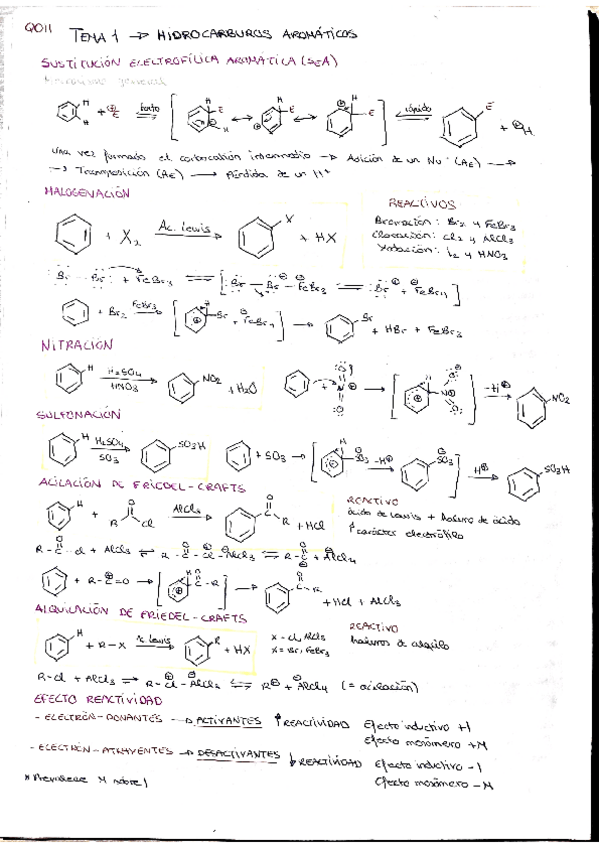 QOII TEMA 1 → HIDROCARBUROS AROMÁTICOS
SUSTITUCIÓN ELECTROFÍLICA AROMÁTICA (SEA)
H H + E lento H E H E E rápido E + H
Una vez formado el carbocatión intermedio → Adición de un Nu⁻ (AE) →
→ Transposición (AE) → Pérdida de un H⁺
HALOGENACIÓN
REACTIVOS
+ X₂ Ac. Lewis X + HX
Bromación: Br₂ y FeBr₃
Cloración: Cl₂ y AlCl₃
Yodación: I₂ y HNO₃
Br - Br + FeBr₃ [Br - Br - FeBr₃ Br + FeBr₄]
+ Br₂ FeBr₃ [ Br + FeBr₄ ] → Br + HBr + FeBr₃
NITRACIÓN
H H₂SO₄ HNO₃ NO₂ + H₂O + N O O → [ H NO O ] -H⁺ NO₂
SULFONACIÓN
H H₂SO₄ SO₃ SO₃H + SO₃ → [ H SO₃ -H⁺ SO₃ ] H⁺ SO₃H
ACILACIÓN DE FRIEDEL-CRAFTS
REACTIVO
H + R O Cl AlCl₃ O R + HCl
ácido de Lewis + haluro de ácido
↑ carácter electrófilo
R - C - Cl + AlCl₃ ⇌ R - C - Cl - AlCl₃ ⇌ R - C + AlCl₄
+ R - C = O → [ H O C - R ] → O C R + HCl + AlCl₃
ALQUILACIÓN DE FRIEDEL-CRAFTS
REACTIVO
H + R - X Ac Lewis R + HX
X = Cl, AlCl₃
X = Br, FeBr₃
haluros de alquilo
R - Cl + AlCl₃ ⇌ R - Cl - AlCl₃ ⇌ R⁺ + AlCl₄ (= acilación)
EFECTO REACTIVIDAD
- ELECTRÓN-DONANTES → ACTIVANTES ↑ REACTIVIDAD Efecto inductivo +I
Efecto mesómero +M
- ELECTRÓN-ATRAYENTES → DESACTIVANTES ↓ REACTIVIDAD Efecto inductivo -I
Efecto mesómero -M
* Prevalece M sobre I